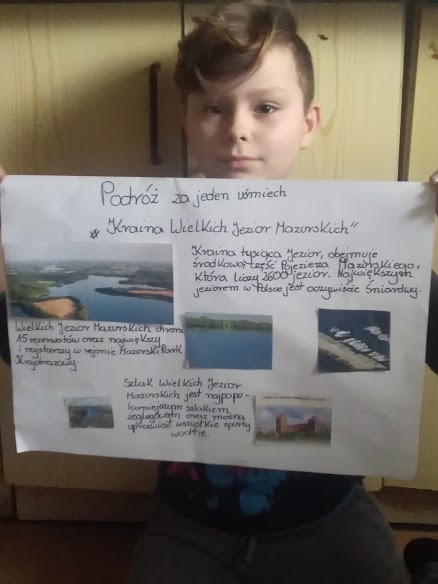 Podróż za jeden uśmiech
„Kraina Wielkich Jezior Mazurskich"
Kraina tysiąca Jezior, obejmuje
środkową część Pojezierza Mazurskiego,
która liczy 2600 jezior. Największym
jeziorem w Polsce jest oczywiście Śniardwy.
Wielkich Jezior Mazurskich chroni
15 rezerwatów oraz największy
i najstarszy w rejonie Mazurski Park
Krajobrazowy.
Szlak Wielkich Jezior
Mazurskich jest najpopu-
larniejszym szlakiem
żeglugowym oraz można
uprawiać wszystkie sporty
wodne.